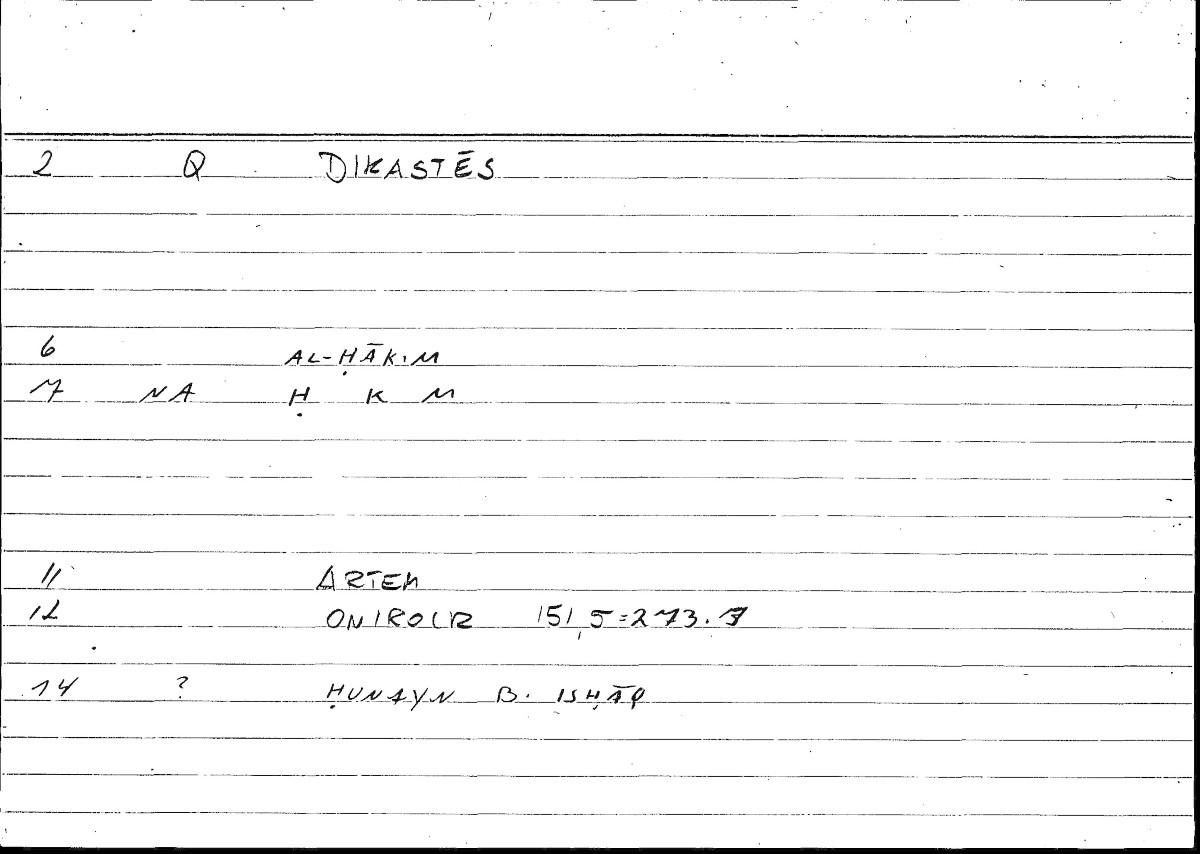 2 Q DIKASTĒS
6 AL-ḤĀKIM
7 NA Ḥ K M
11 ARTEM
12 ONIROCR 151,5=273.7
14 ? ḤUNAYN B. ISḤĀQ